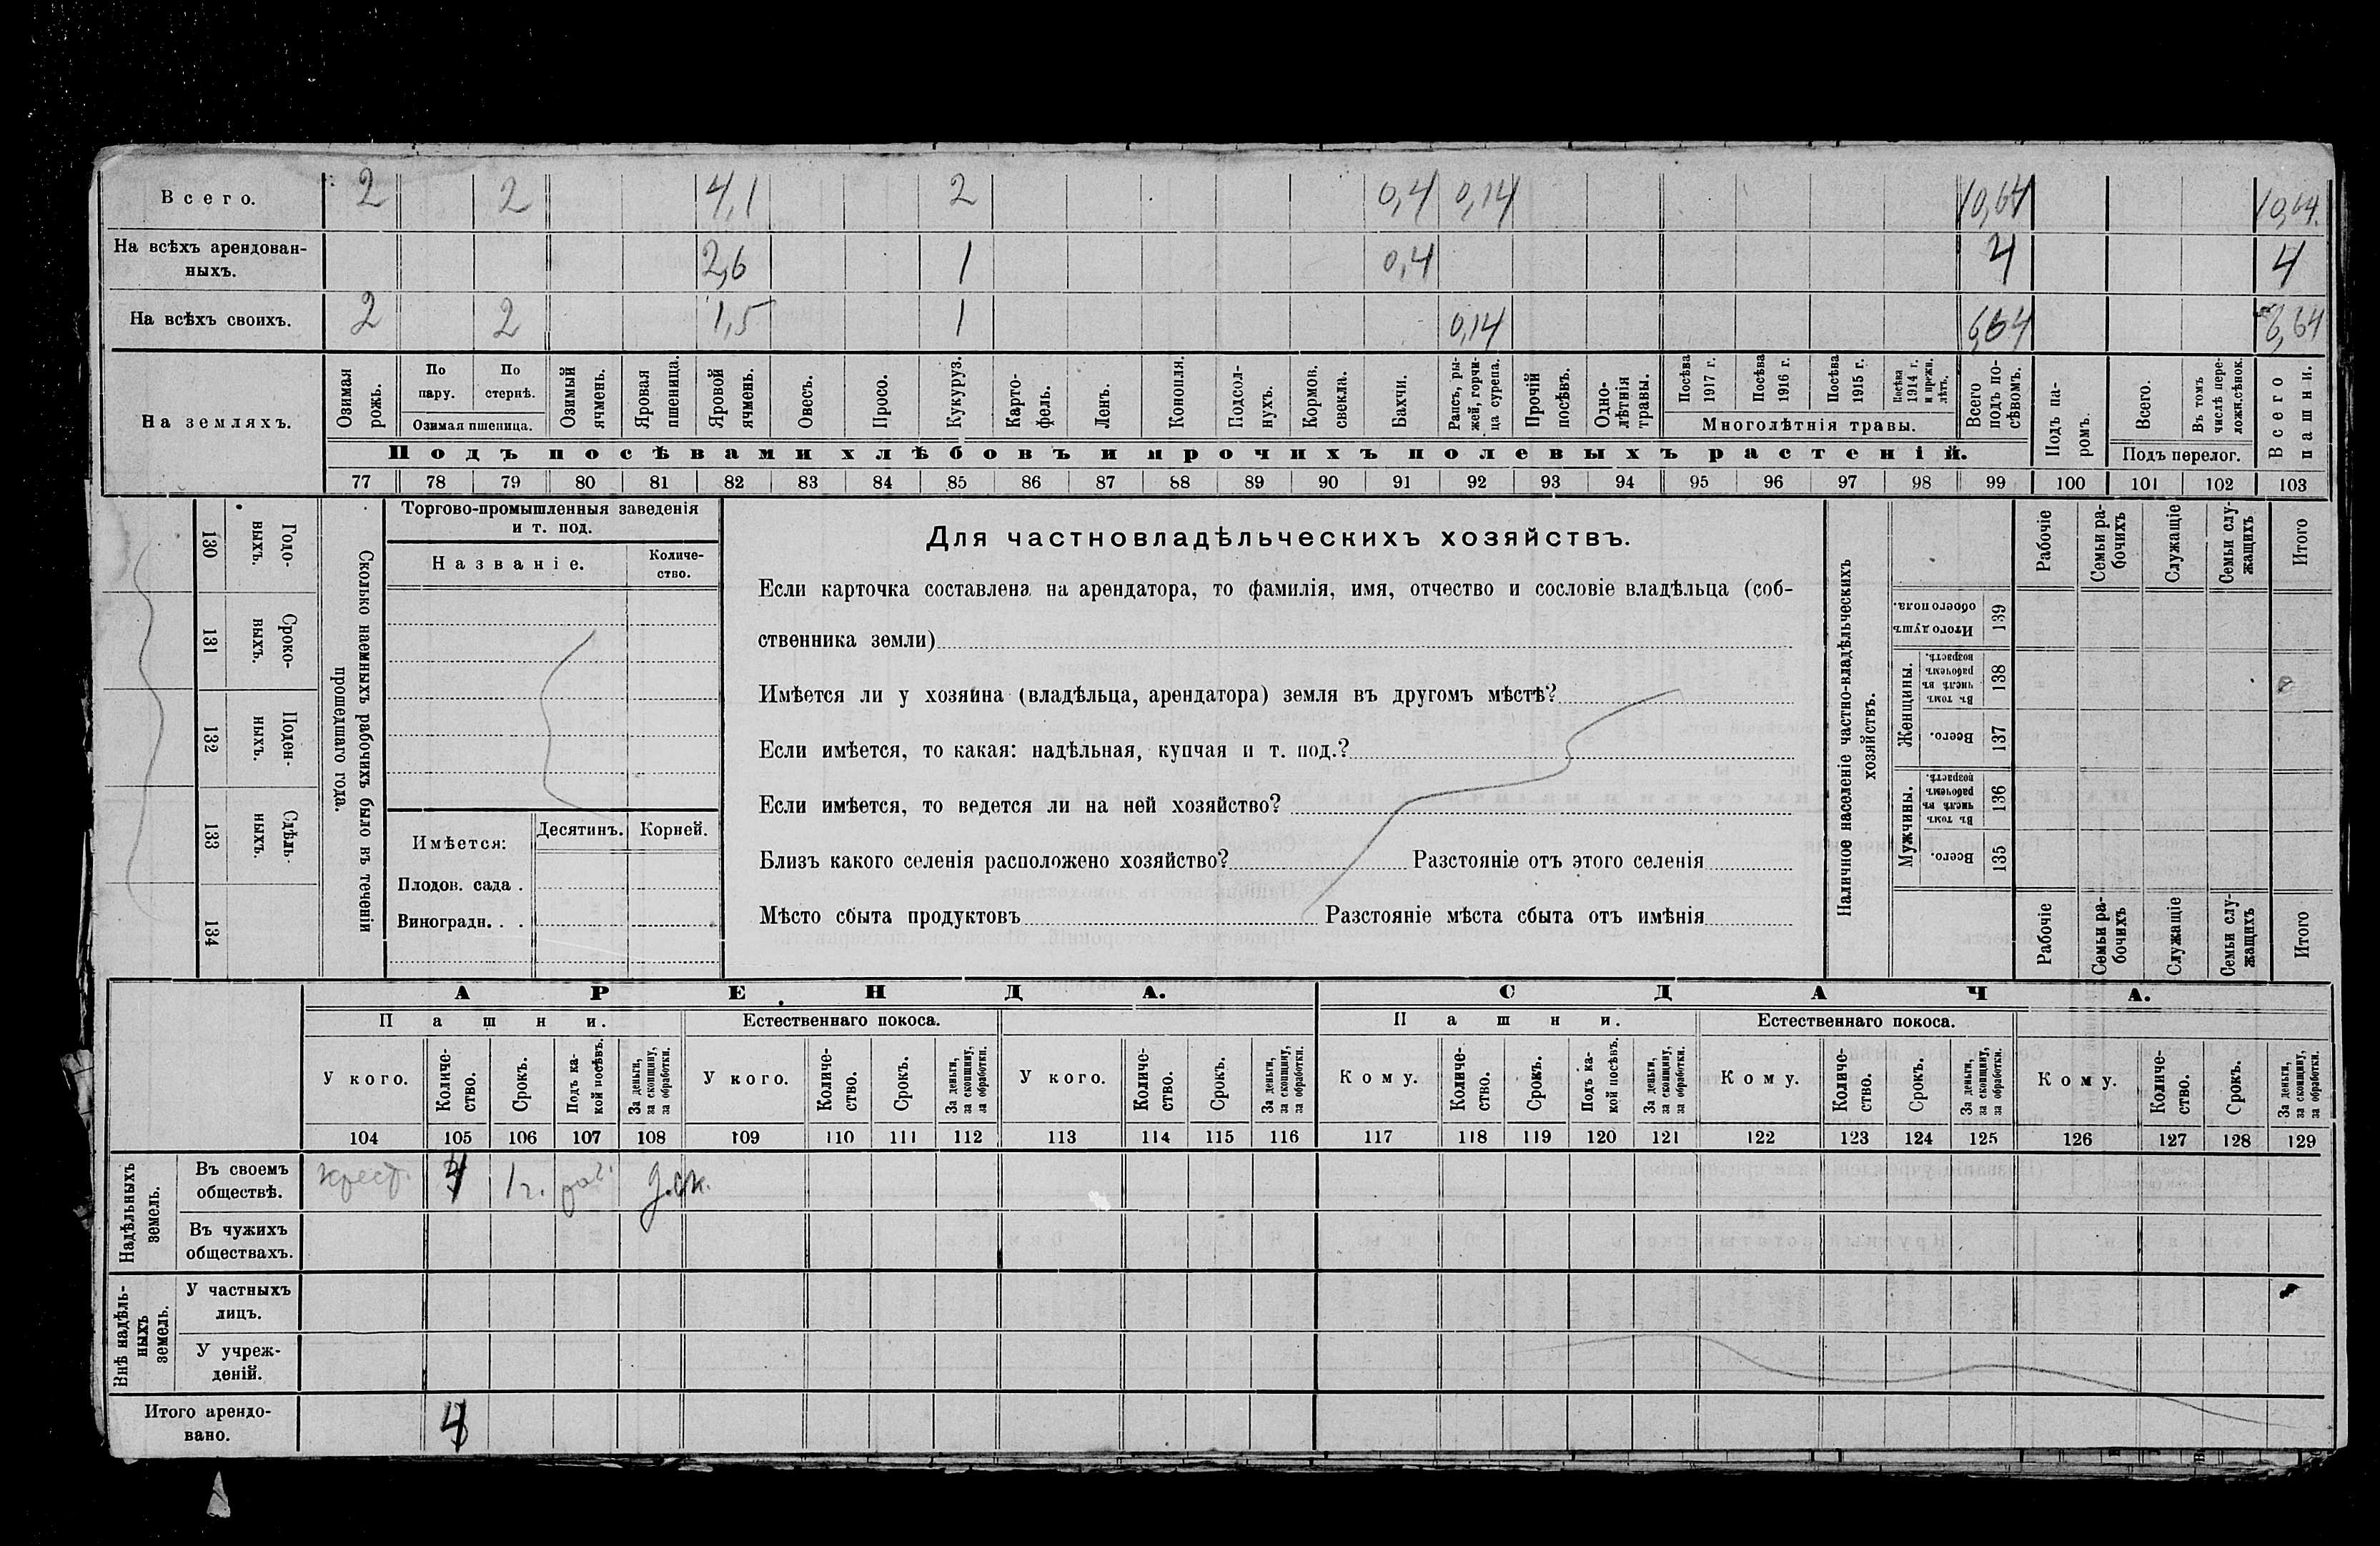 Всего. 2 2 4,1 2 0,4 0,14 10,64 10,64
На всѣхъ арендован-
ныхъ. 2,6 1 0,4 4 4
На всѣхъ своихъ. 2 2 1,5 1 0,14 6,64 6,64
На земляхъ.
Озимая
рожь.
По
пару.
По
стернѣ.
Озимая пшеница.
Озимый
ячмень.
Яровая
пшеница.
Яровой
ячмень.
Овесъ.
Просо.
Кукуруз.
Карто-
фель.
Ленъ.
Конопля.
Подсол-
нухъ.
Кормов.
свекла.
Бахчи.
Рапсъ, ры-
жей, горчи-
ца сурепа.
Прочій
посѣвъ.
Одно-
лѣтнія
травы.
Посѣва
1917 г.
Посѣва
1916 г.
Посѣва
1915 г.
Посѣва
1914 г.
и прежн.
лѣтъ.
Многолѣтнія травы.
Всего
подъ по-
сѣвомъ.
Подъ па-
ромъ.
Всего.
Въ томъ
числѣ пере-
ложн.сѣнок.
Подъ перелог.
Всего
пашни.
Подъ посѣвами хлѣбовъ и прочихъ полевыхъ растеній.
77 78 79 80 81 82 83 84 85 86 87 88 89 90 91 92 93 94 95 96 97 98 99 100 101 102 103
130 Годо-
выхъ.
131 Сроко-
выхъ.
132 Поден-
ныхъ.
133 Сдѣль-
ныхъ.
134
Сколько наемныхъ рабочихъ было въ теченіи
прошедшаго года.
Торгово-промышленныя заведенія
и т. под.
Названіе.
Количе-
ство.
Имѣется:
Десятинъ. Корней.
Плодов. сада .
Виноградн. . .
Для частновладѣльческихъ хозяйствъ.
Если карточка составлена на арендатора, то фамилія, имя, отчество и сословіе владѣльца (соб-
ственника земли)
Имѣется ли у хозяина (владѣльца, арендатора) земля въ другомъ мѣстѣ?
Если имѣется, то какая: надѣльная, купчая и т. под.?
Если имѣется, то ведется ли на ней хозяйство?
Близъ какого селенія расположено хозяйство? Разстояніе отъ этого селенія
Мѣсто сбыта продуктовъ Разстояніе мѣста сбыта отъ имѣнія
Наличное населеніе частно-владѣльческихъ
хозяйствъ.
Рабочіе
Семьи ра-
бочихъ
Служащіе
Семьи слу-
жащихъ
Итого
Итого душъ
обоего пола.
139
Женщины.
Въ томъ
числѣ въ
рабочемъ
возрастѣ.
138
Всего.
137
Мужчины.
Въ томъ
числѣ въ
рабочемъ
возрастѣ.
136
Всего.
135
Рабочіе
Семьи ра-
бочихъ
Служащіе
Семьи слу-
жащихъ
Итого
АРЕНДА. СДАЧА.
Пашни. Естественнаго покоса. Пашни. Естественнаго покоса.
У кого.
Количе-
ство.
Срокъ.
Подъ ка-
кой посѣвъ.
За деньги,
за скопщину,
за обработки.
У кого.
Количе-
ство.
Срокъ.
За деньги,
за скопщину,
за обработки.
У кого.
Количе-
ство.
Срокъ.
За деньги,
за скопщину,
за обработки.
Кому.
Количе-
ство.
Срокъ.
Подъ ка-
кой посѣвъ.
За деньги,
за скопщину,
за обработки.
Кому.
Количе-
ство.
Срокъ.
За деньги,
за скопщину,
за обработки.
Кому.
Количе-
ство.
Срокъ.
За деньги,
за скопщину,
за обработки.
104 105 106 107 108 109 110 111 112 113 114 115 116 117 118 119 120 121 122 123 124 125 126 127 128 129
Надѣльныхъ
земель.
Въ своемъ
обществѣ. крест. 4 1 г.
Въ чужихъ
обществахъ.
Внѣ надѣль-
ныхъ
земель.
У частныхъ
лицъ.
У учреж-
деній.
Итого арендо-
вано. 4